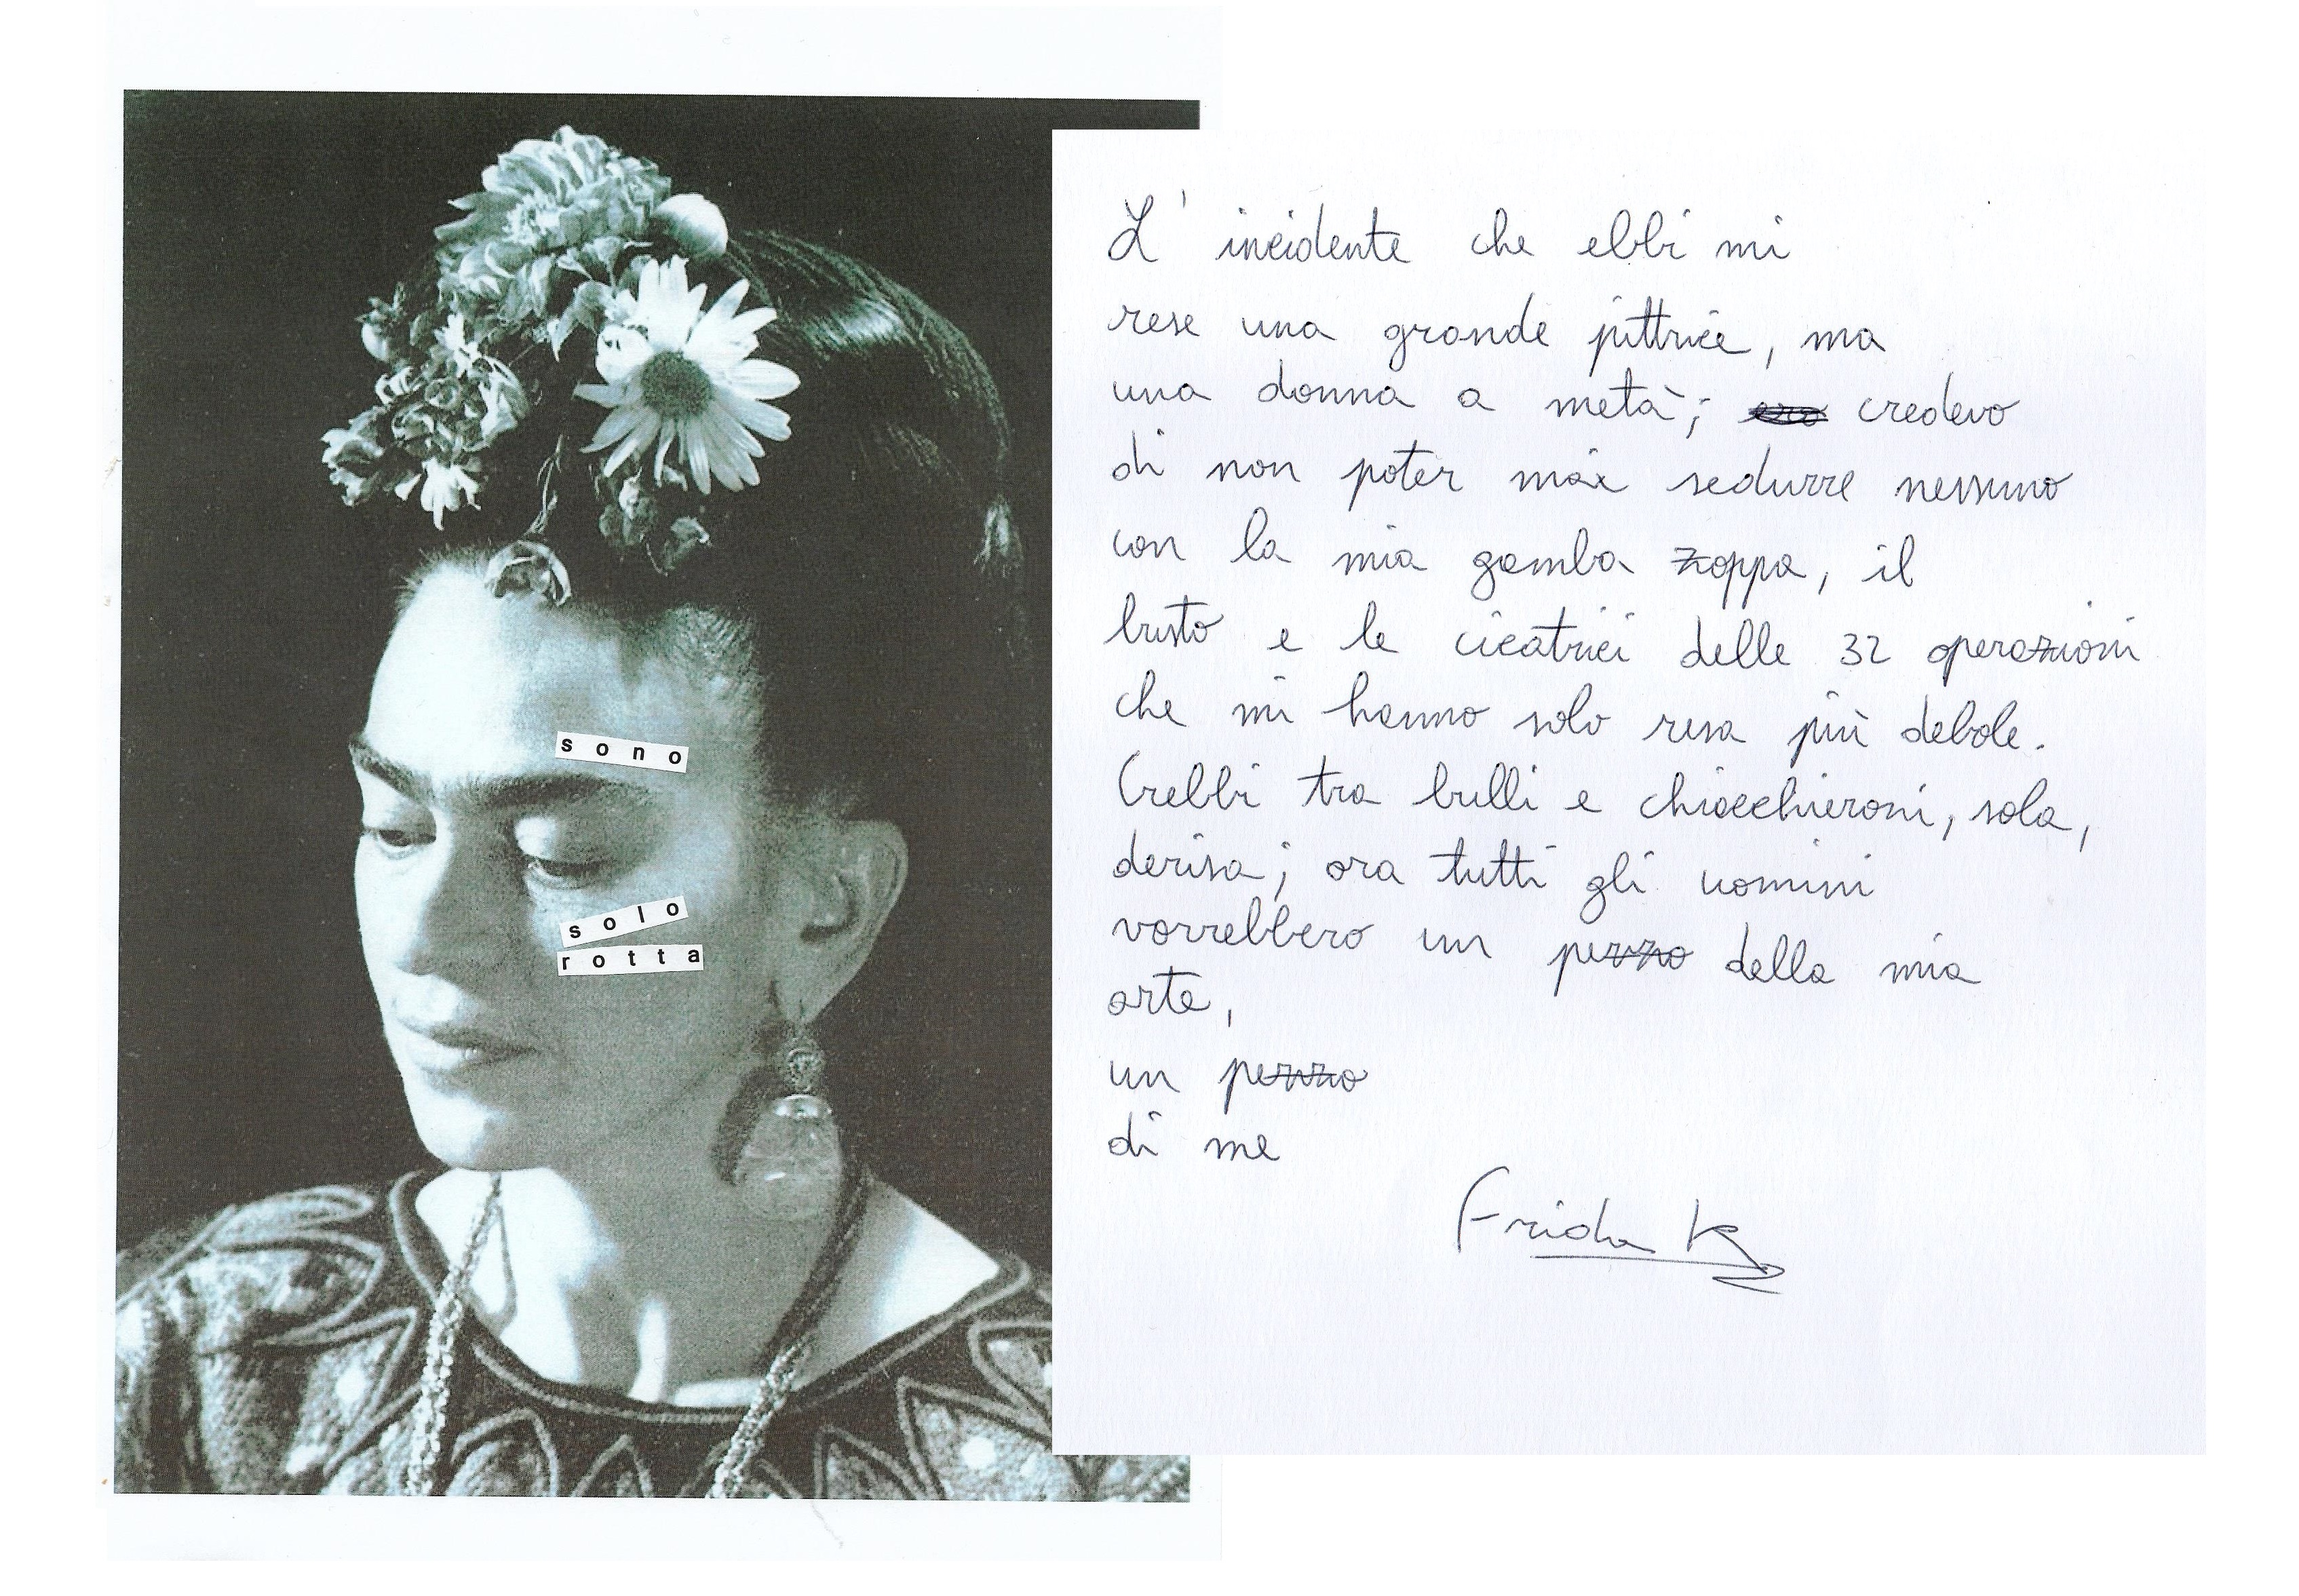 sono
solo
rotta
L'incidente che ebbi mi
rese una grande pittrice, ma
una donna a metà; credevo
di non poter mai sedurre nessuno
con la mia gamba zoppa, il
busto e le cicatrici delle 32 operazioni
che mi hanno solo resa più debole.
Crebbi tra bulli e chiacchieroni, sola,
derisa; ora tutti gli uomini
vorrebbero un pezzo della mia
arte,
un pezzo
di me
Frida K